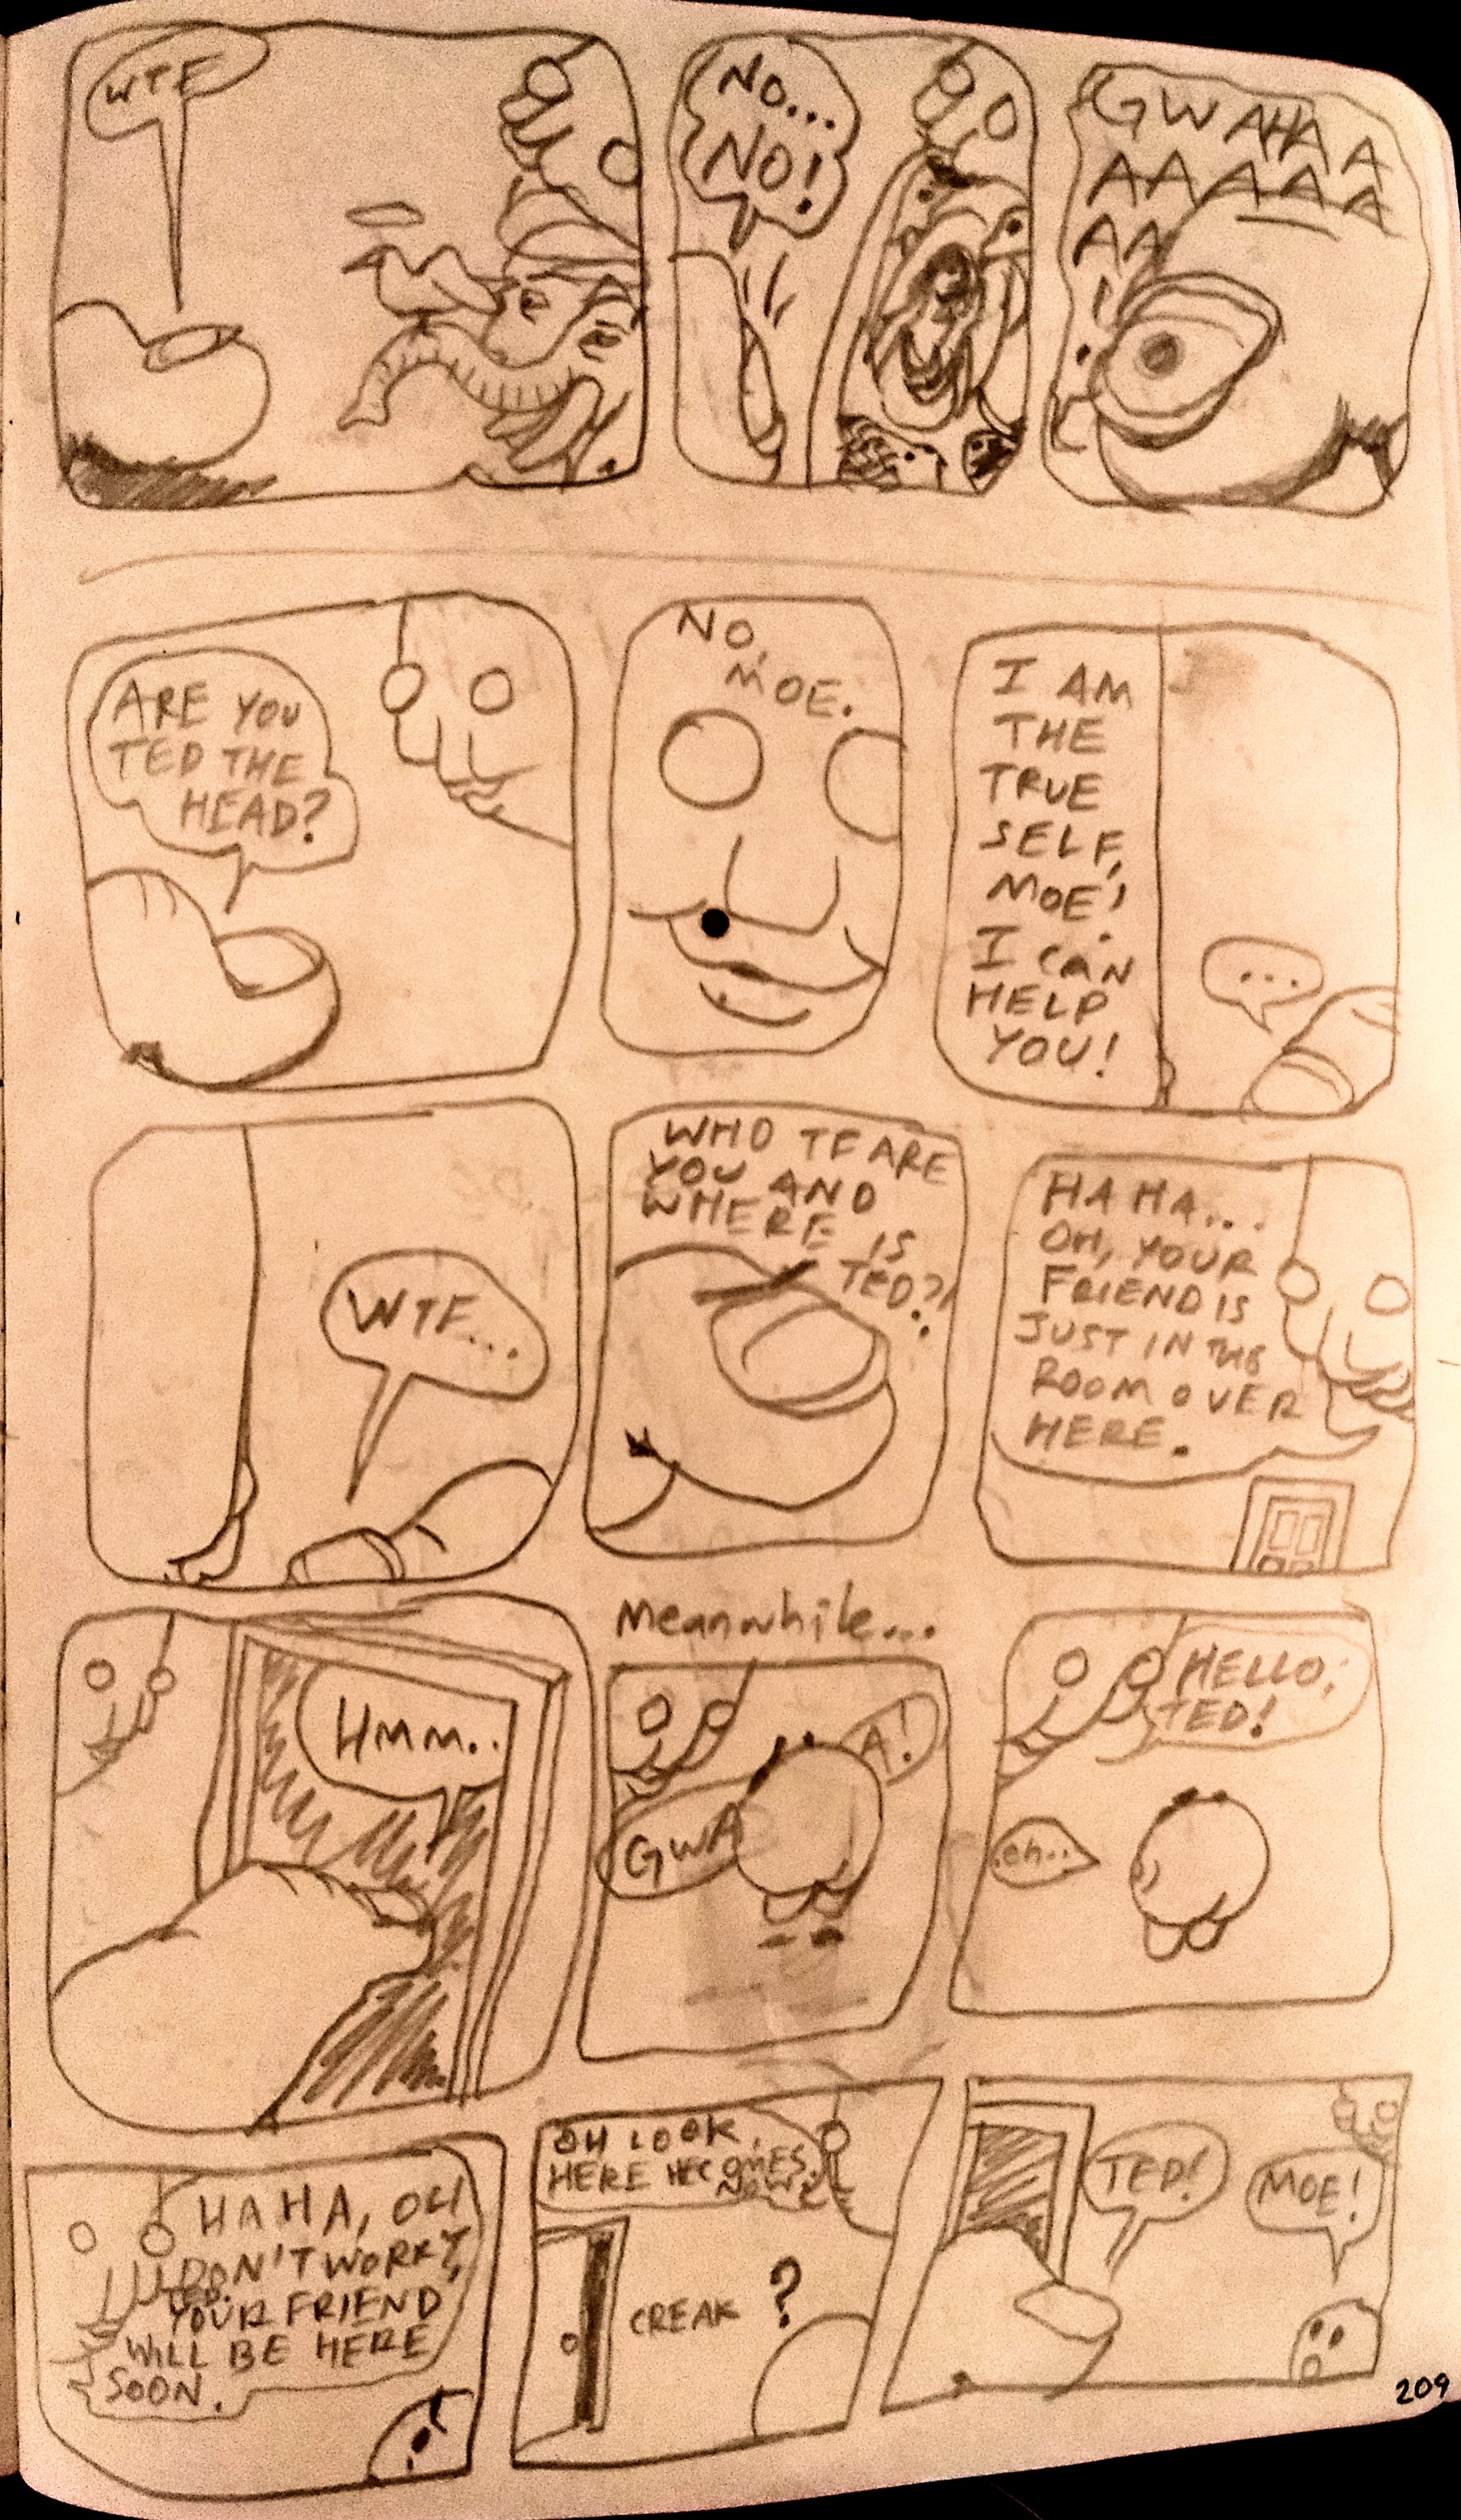 WTF
NO...
NO!
GWAHAA
AAAAA
AA
ARE YOU
TED THE
HEAD?
NO,
MOE.
I AM
THE
TRUE
SELF,
MOE!
I CAN
HELP
YOU!
...
WTF...
WHO TF ARE
YOU AND
WHERE IS
TED?!
HA HA...
OH, YOUR
FRIEND IS
JUST IN THE
ROOM OVER
HERE.
HMM..
Meanwhile...
GWA
A!
HELLO,
TED!
eh..
HAHA, OH
DON'T WORRY,
TED.
YOUR FRIEND
WILL BE HERE
SOON.
!
OH LOOK,
HERE HE COMES
NOW.
CREAK ?
TED!
MOE!
209